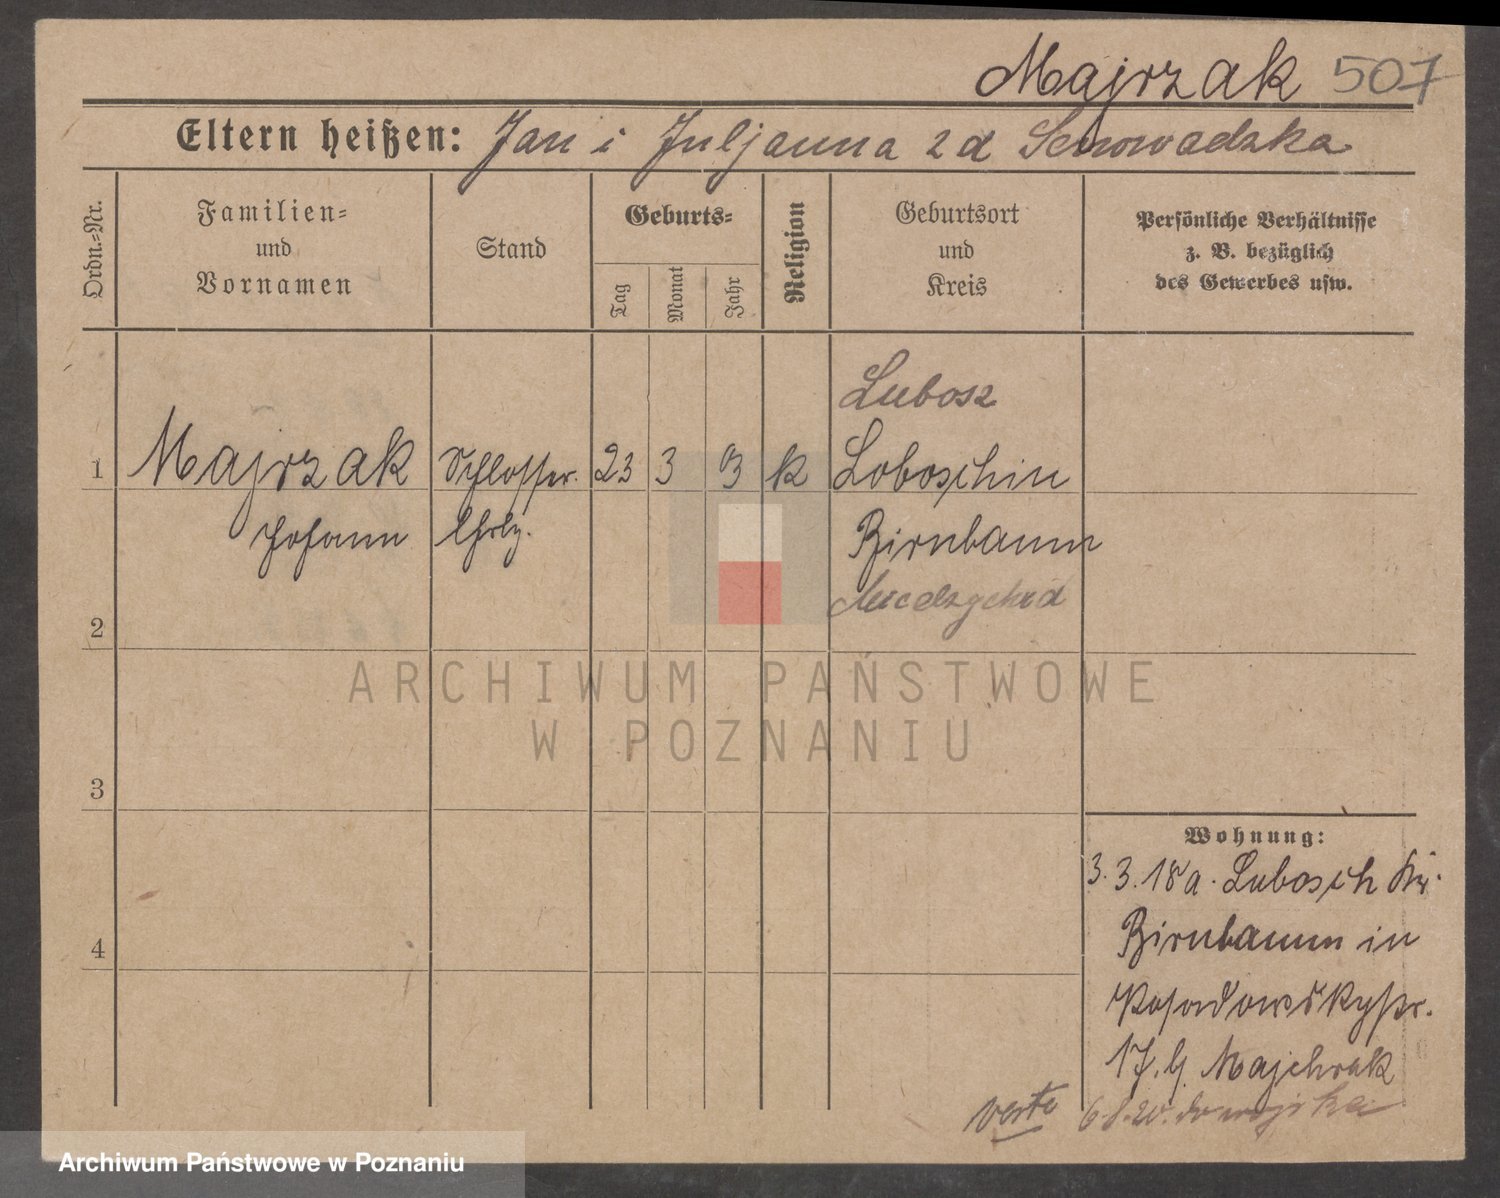 Majrzak 507
Eltern heißen: Jan i Juljanna z d
Ordn.-Nr.
Familien-
und
Vornamen
Stand
Geburts-
Tag
Monat
Jahr
Religion
Geburtsort
und
Kreis
Persönliche Verhältnisse
z. B. bezüglich
des Gewerbes usw.
Lubosz
1 Majrzak Schlosser. 23 3 03 k Loboschin
Johann Lhrlg. Birnbaum
2
3
4
Wohnung:
3. 3. 18 a. Lubosch Kr.
Birnbaum in
Posadowskystr.
17. b. Majchrak
verte 6.8.20. do wojska
ARCHIWUM PAŃSTWOWE
W POZNANIU
Archiwum Państwowe w Poznaniu